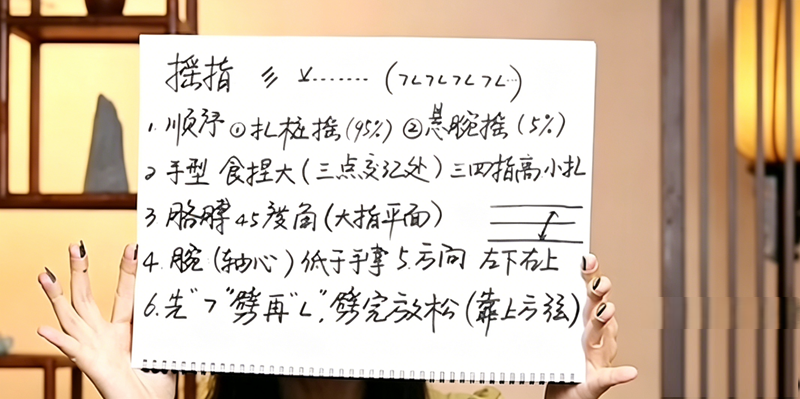 摇指 彡 ⩡……… (ㄱㄴㄱㄴㄱㄴㄱㄴ…)
1. 顺序 ①扎桩摇(95%) ②悬腕摇(5%)
2 手型 食捏大(三点交汇处) 三四指高小扎
3 胳膊45度角(大指平面)
4. 腕(轴心)低于手掌 5.方向 左下右上
6.先"ㄱ"劈再"ㄴ",劈完放松(靠上方弦)